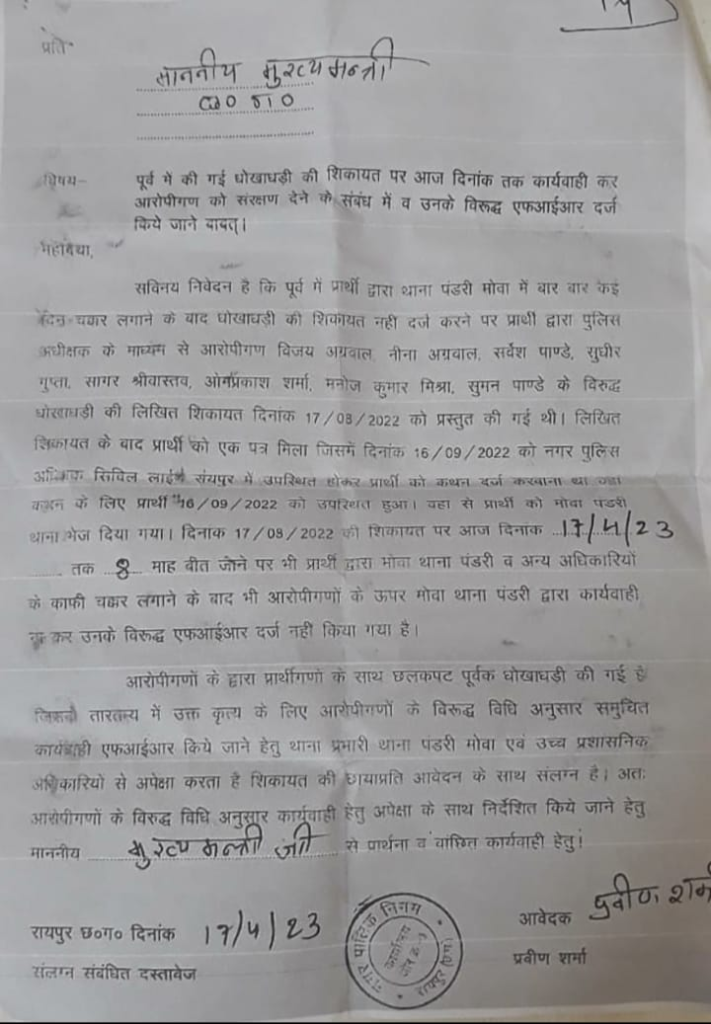 प्रति
माननीय मुख्यमन्त्री
छ० ग०
विषय- पूर्व में की गई धोखाधड़ी की शिकायत पर आज दिनांक तक कार्यवाही कर
आरोपीगण को संरक्षण देने के संबंध में व उनके विरूद्ध एफआईआर दर्ज
किये जाने बावत्।
सविनय निवेदन है कि पूर्व में प्रार्थी द्वारा थाना पंडरी मोवा में बार बार कई
चक्कर लगाने के बाद धोखाधड़ी की शिकायत नही दर्ज करने पर प्रार्थी द्वारा पुलिस
अधीक्षक के माध्यम से आरोपीगण विजय अग्रवाल, नीना अग्रवाल, सर्वेश पाण्डे, सुधीर
गुप्ता, सागर श्रीवास्तव, ओमप्रकाश शर्मा, मनोज कुमार मिश्रा, सुमन पाण्डे के विरुद्ध
धोखाधड़ी की लिखित शिकायत दिनांक 17/08/2022 को प्रस्तुत की गई थी। लिखित
शिकायत के बाद प्रार्थी को एक पत्र मिला जिसमें दिनांक 16/09/2022 को नगर पुलिस
सिविल लाईन रायपुर में उपस्थित होकर प्रार्थी को कथन दर्ज करवाना था वहा
कथन के लिए प्रार्थी 16/09/2022 को उपस्थित हुआ। वहा से प्रार्थी को मोवा पंडरी
थाना भेज दिया गया। दिनाक 17/08/2022 की शिकायत पर आज दिनांक 17/4/23
तक 8 माह बीत जाने पर भी प्रार्थी द्वारा मोवा थाना पंडरी व अन्य अधिकारियों
के काफी चक्कर लगाने के बाद भी आरोपीगणों के ऊपर मोवा थाना पंडरी द्वारा कार्यवाही
न कर उनके विरूद्ध एफआईआर दर्ज नही किया गया है।
आरोपीगणों के द्वारा प्रार्थीगणों के साथ छलकपट पूर्वक धोखाधड़ी की गई है
जिसके तारतम्य में उक्त कृत्य के लिए आरोपीगणों के विरूद्ध विधि अनुसार समुचित
कार्यवाही एफआईआर किये जाने हेतु थाना प्रभारी थाना पंडरी मोवा एवं उच्च प्रशासनिक
अधिकारियो से अपेक्षा करता है शिकायत की छायाप्रति आवेदन के साथ संलग्न है। अतः
आरोपीगणों के विरूद्ध विधि अनुसार कार्यवाही हेतु अपेक्षा के साथ निर्देशित किये जाने हेतु
माननीय मुख्य मन्त्री जी से प्रार्थना व वांछित कार्यवाही हेतु!
रायपुर छ०ग० दिनांक 17/4/23
संलग्न संबंधित दस्तावेज
नगर पालिक निगम
कार्यालय
रायपुर
प्रवीण शर्मा
आवेदक
प्रवीण शर्मा